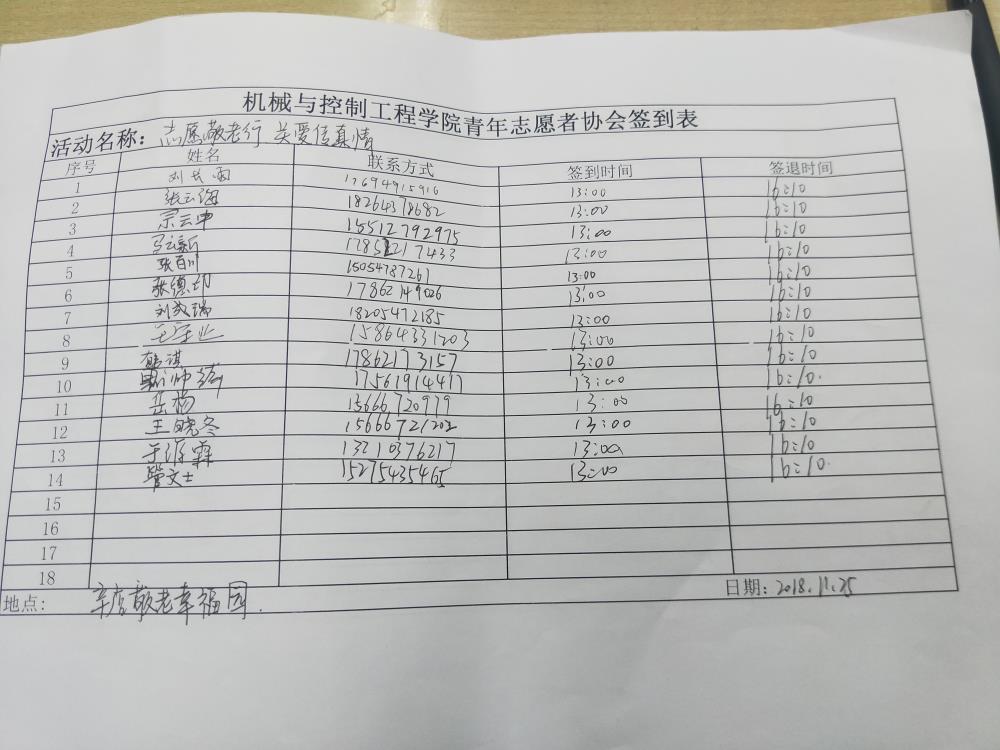 机械与控制工程学院青年志愿者协会签到表
活动名称: 志愿敬老行 关爱传真情
序号 姓名 联系方式 签到时间 签退时间
1 17694915916 13:00 16:10
2 张云海 18264378682 13:00 16:10
3 宗云中 15512792975 13:00 16:10
4 13:00 16:10
5 张百川 15054787261 13:00 16:10
6 张德功 17862149026 13:00 16:10
7 刘敬瑞 18205472185 13:00 16:10
8 王守业 15864331203 13:00 16:10
9 韩淇 17862173157 13:00 16:10
10 17561914417 13:00 16:10.
11 岳杨 15666720979 13:00 16:10
12 王晓冬 15666721202 13:00 16:10
13 13210376217 13:00 16:10
14 管文士 15275435465 13:00 16:10.
15
16
17
18
地点: 辛店敬老幸福园. 日期: 2018.11.25